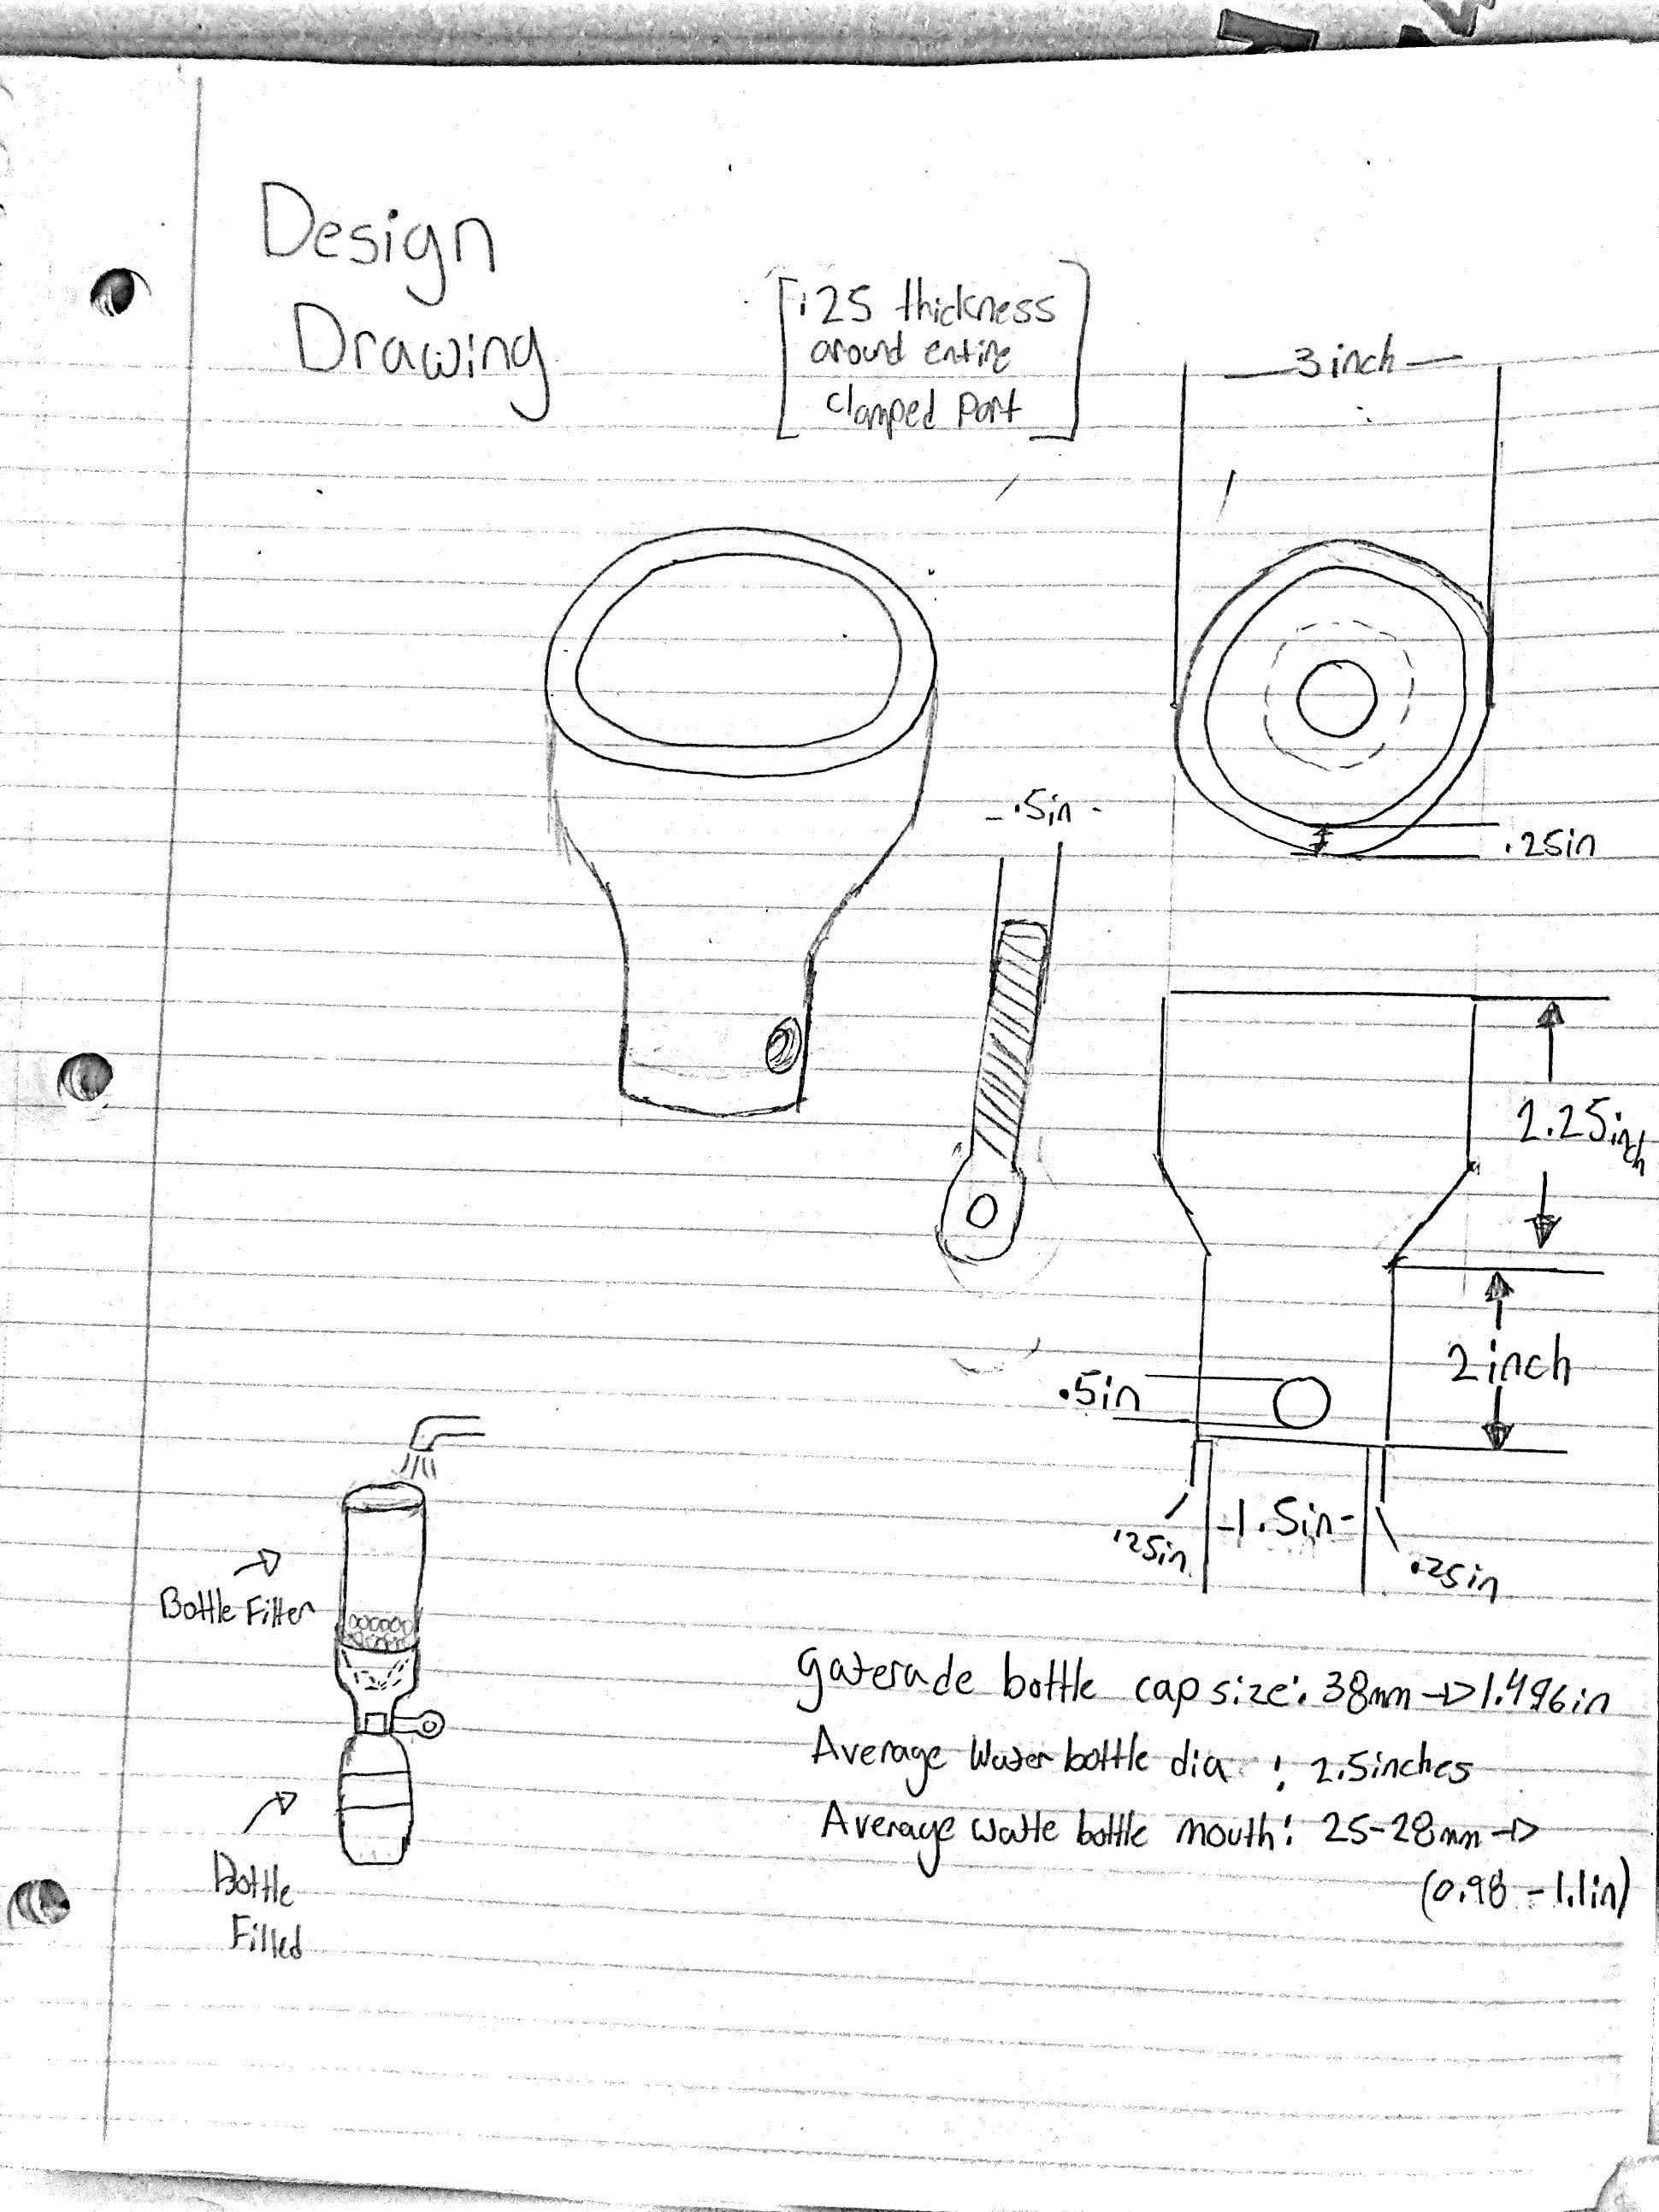 Design
Drawing
[.25 thickness
around entire
clamped part]
3 inch
.25in
.5in
2.25inch
2 inch
.5in
.25in
1.5in
.25in
Bottle Filter
Bottle
Filled
gaterade bottle cap size: 38mm → 1.496in
Average Water bottle dia : 2.5inches
Average watte bottle mouth: 25-28mm →
(0.98 - 1.1in)